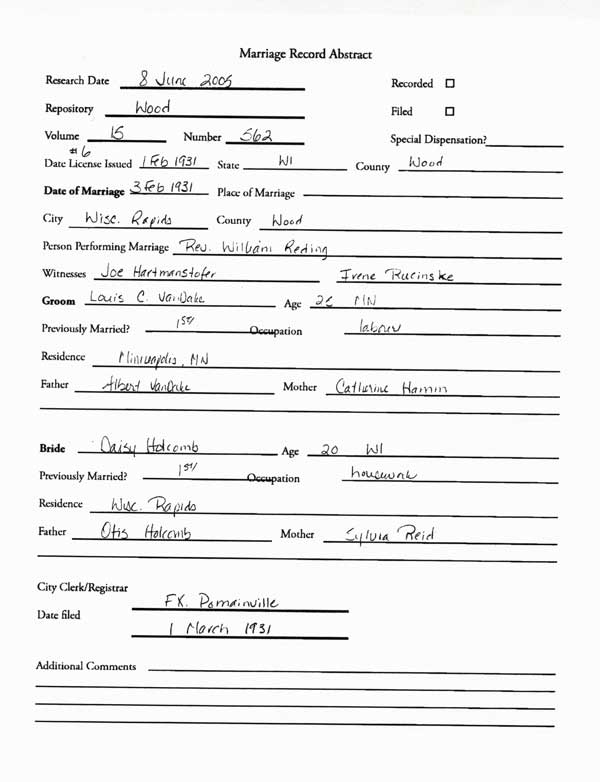 Marriage Record Abstract
Research Date 8 June 2005 Recorded ☐
Repository Wood Filed ☐
Volume 15 Number 562 Special Dispensation?
#6
Date License Issued 1 Feb 1931 State WI County Wood
Date of Marriage 3 Feb 1931 Place of Marriage
City Wisc. Rapids County Wood
Person Performing Marriage Rev. William Reding
Witnesses Joe Hartmanstofer Irene Rucinske
Groom Louis C. VanDake Age MN
Previously Married? 1st Occupation labour
Residence Minneapolis, MN
Father Albert VanDake Mother Catherine Hamm
Bride Daisy Holcomb Age 20 WI
Previously Married? 1st Occupation housework
Residence Wisc. Rapids
Father Otis Holcomb Mother Sylvia Reid
City Clerk/Registrar F.X. Pomainville
Date filed 1 March 1931
Additional Comments